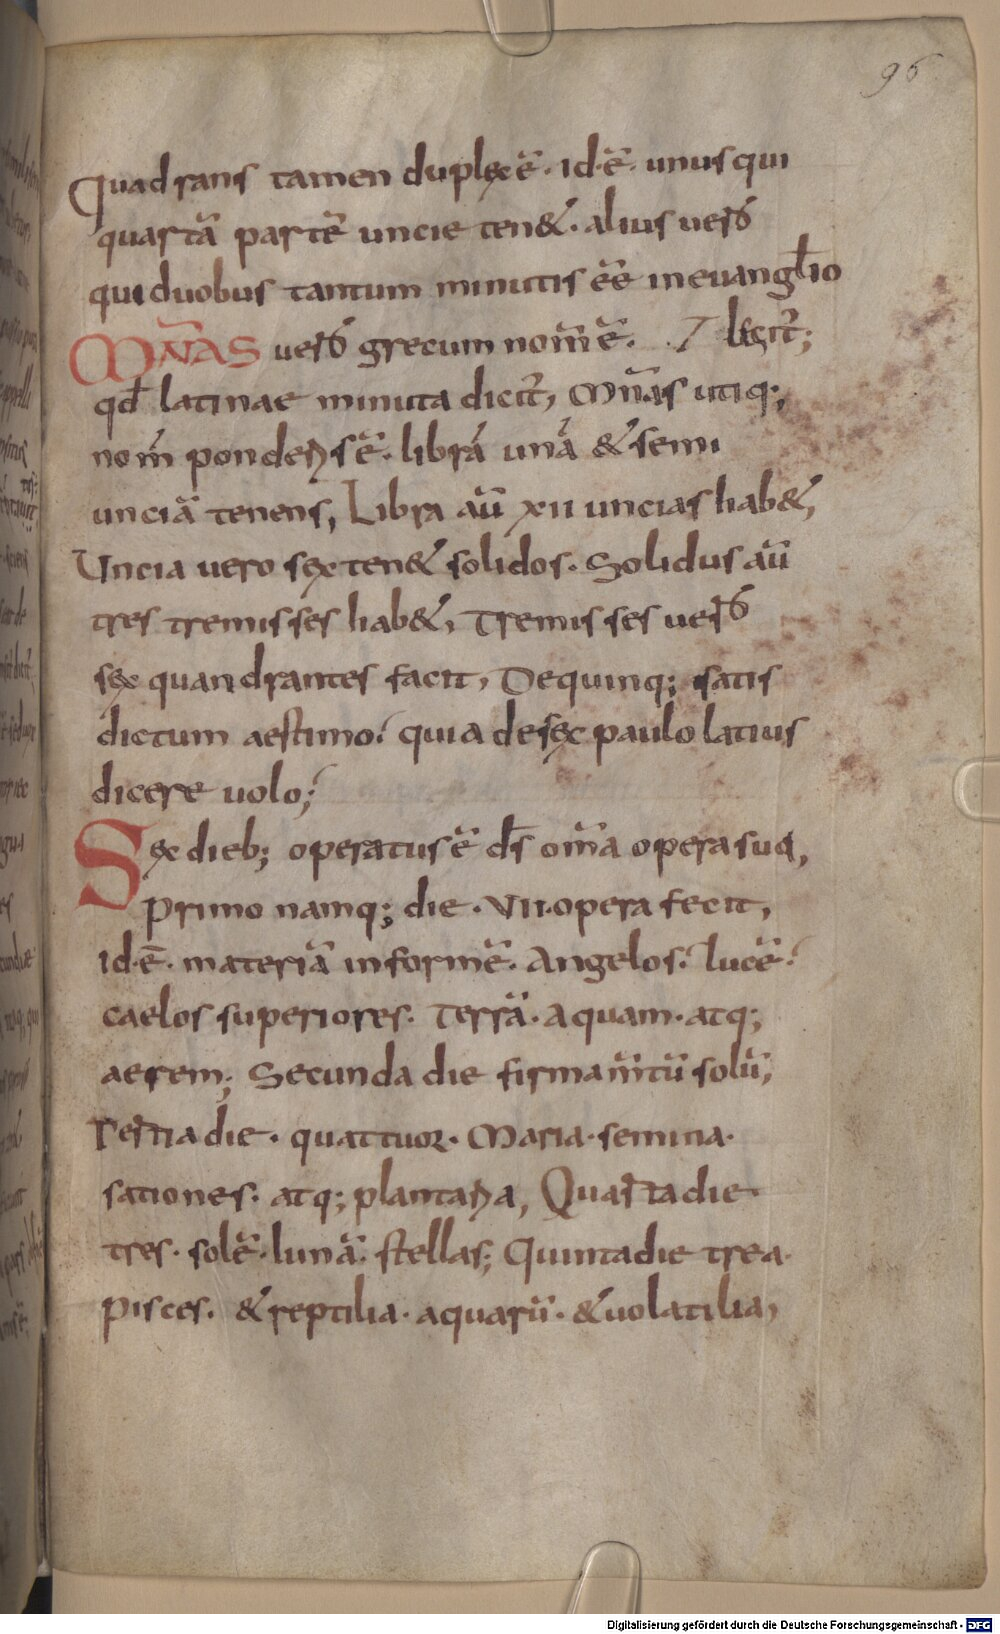 96
Quadrans tamen duplex ē̃· id·ē̃· unus qui
quartã partẽ uncie ten&· alius uer̃o
qui duobus tantum minutis ẽẽ in euangl̃io
MÑAS uer̃o grecum nom̃ ẽ. legit̃;
qđ latinae minuta dicit̃, Mñas utiq;
nom̃ ponderis ẽ· librã unã & semi
unciã tenens, Libra aũ xii uncias hab&,
Uncia uero sex ten& solidos· Solidus aũ
tres tremisses hab&, Tremisses uer̃o
sex quandrantes facit, De quinq; satis
dictum aestimo; quia de sex paulo latius
dicere uolo;
Sex dieb; operatus ẽ d̃s om̃a opera sua,
Primo namq; die· VII· opera fecit,
id·ē· materiã informẽ· Angelos· lucẽ·
caelos superiores· Terrã· aquam· atq;
aerem; Secunda die firmam̃tũ solũ;
Tertia die· quattuor· Maria· semina·
sationes· atq; plantaria, Quarta die·
tres· solẽ· lunã· stellas; Quinta die trea·
pisces· & reptilia· aquarũ· & uolatilia,
Digitalisierung gefördert durch die Deutsche Forschungsgemeinschaft - DFG